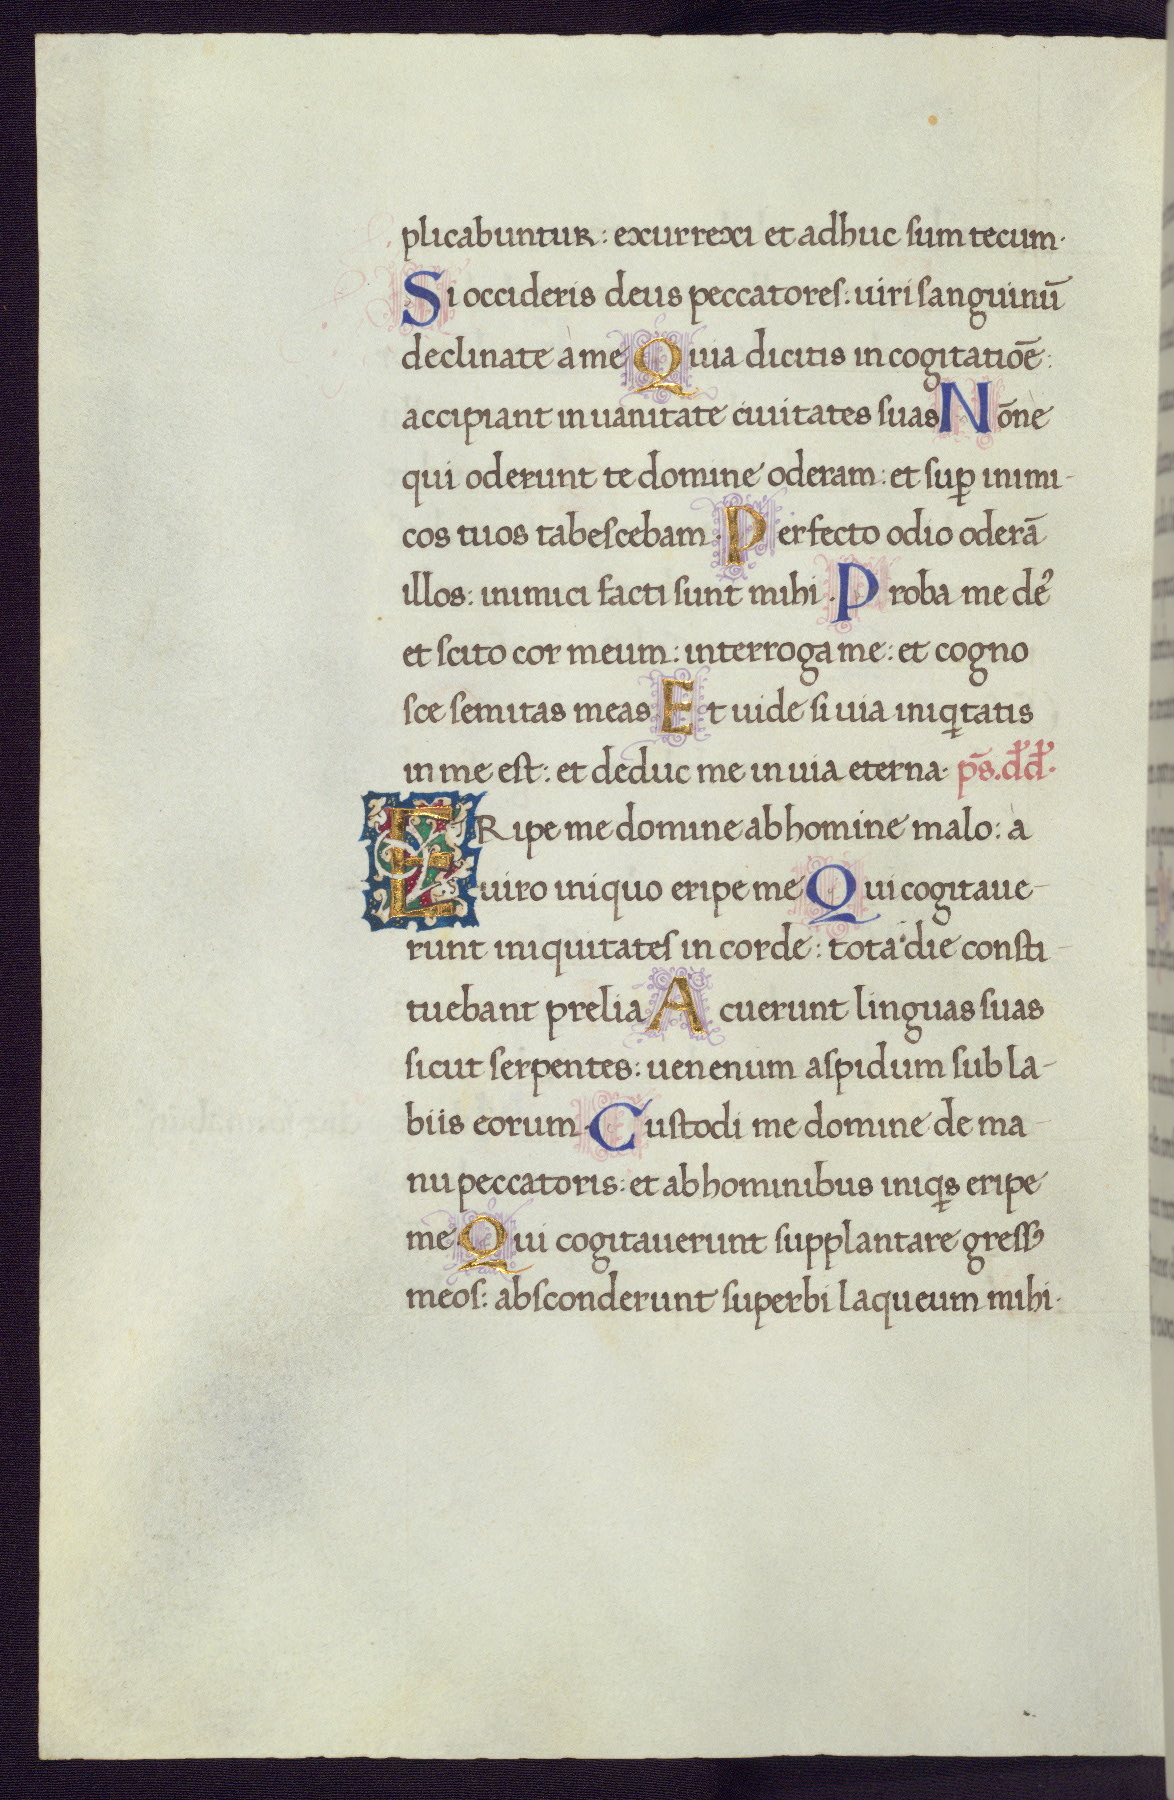 plicabuntur: exurrexi et adhuc sum tecum·
Si occideris deus peccatores: uiri sanguinū
declinate à me Quia dicitis in cogitatiōe:
accipiant in uanitate ciuitates suas Nōne
qui oderunt te domine oderam: et suꝑ inimi-
cos tuos tabescebam· Perfecto odio oderā
illos: inimici facti sunt mihi· Proba me de᾽
et scito cor meum: interroga me: et cogno
sce semitas meas Et uide si uia iniq̇tatis
in me est: et deduc me in uia eterna· p̄s. dd̄·
ERipe me domine ab homine malo: à
uiro iniquo eripe me Qui cogitaue-
runt iniquitates in corde: tota die consti-
tuebant prelia Acuerunt linguas suas
sicut serpentes: uenenum aspidum sub la-
biis eorum· Custodi me domine de ma
nu peccatoris: et ab hominibus iniq̇s eripe
me· Qui cogitauerunt supplantare gressꝰ
meos: absconderunt superbi laqueum mihi·